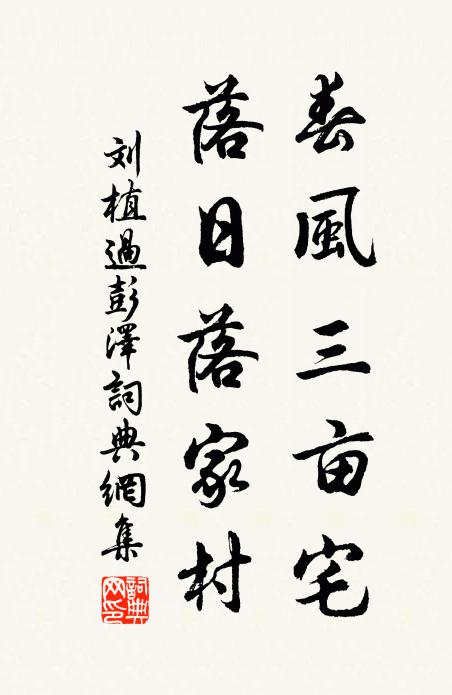 春風三亩宅
落日落家村
刘植過彭澤詞典網集
詞典网印